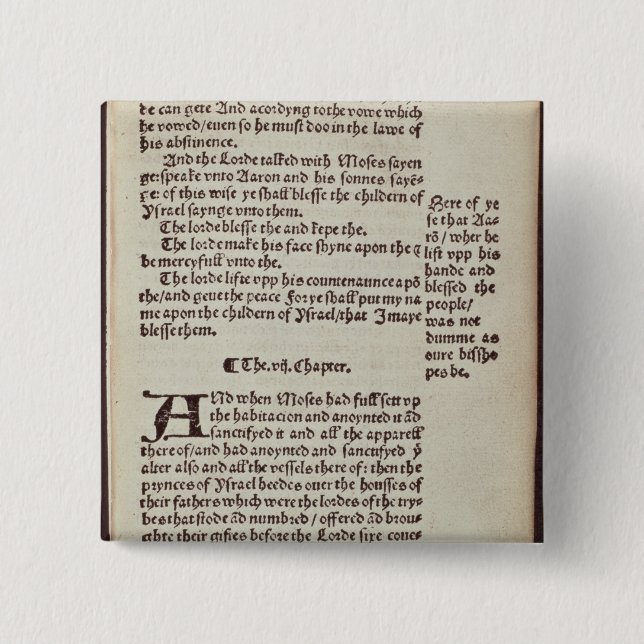 he can gete And acordyng to the vowe which
he vowed/euen so he must doo in the lawe of
his abstinence.
And the Lorde talked with Moses sayen
ge: speake vnto Aaron and his sonnes sayẽ-
ge: of this wise ye shall blesse the childern of
Ysrael saynge vnto them.
The lorde blesse the and kepe the.
The lorde make his face shyne apon the &
be mercyfull vnto the.
The lorde lifte vpp his countenaunce apõ
the/and geue the peace For ye shall put my na
me apon the childern of Ysrael/that I maye
blesse them.
Here of ye
se that Aa-
rõ/ wher he
lift vpp his
hande and
blessed the
people/
was not
dumme as
oure bissho
pes be.
¶ The .vij. Chapter.
ANd when Moses had full sett vp
the habitacion and anoynted it ãd
sanctifyed it and all the apparell
there of/and had anoynted and sanctifyed ẙ
alter also and all the vessels there of: then the
prynces of Ysrael heedes ouer the housses of
their fathers which were the lordes of the try-
bes that stode ãd numbred/ offered ãd brou-
ghte their giftes before the Lorde sixe couc-